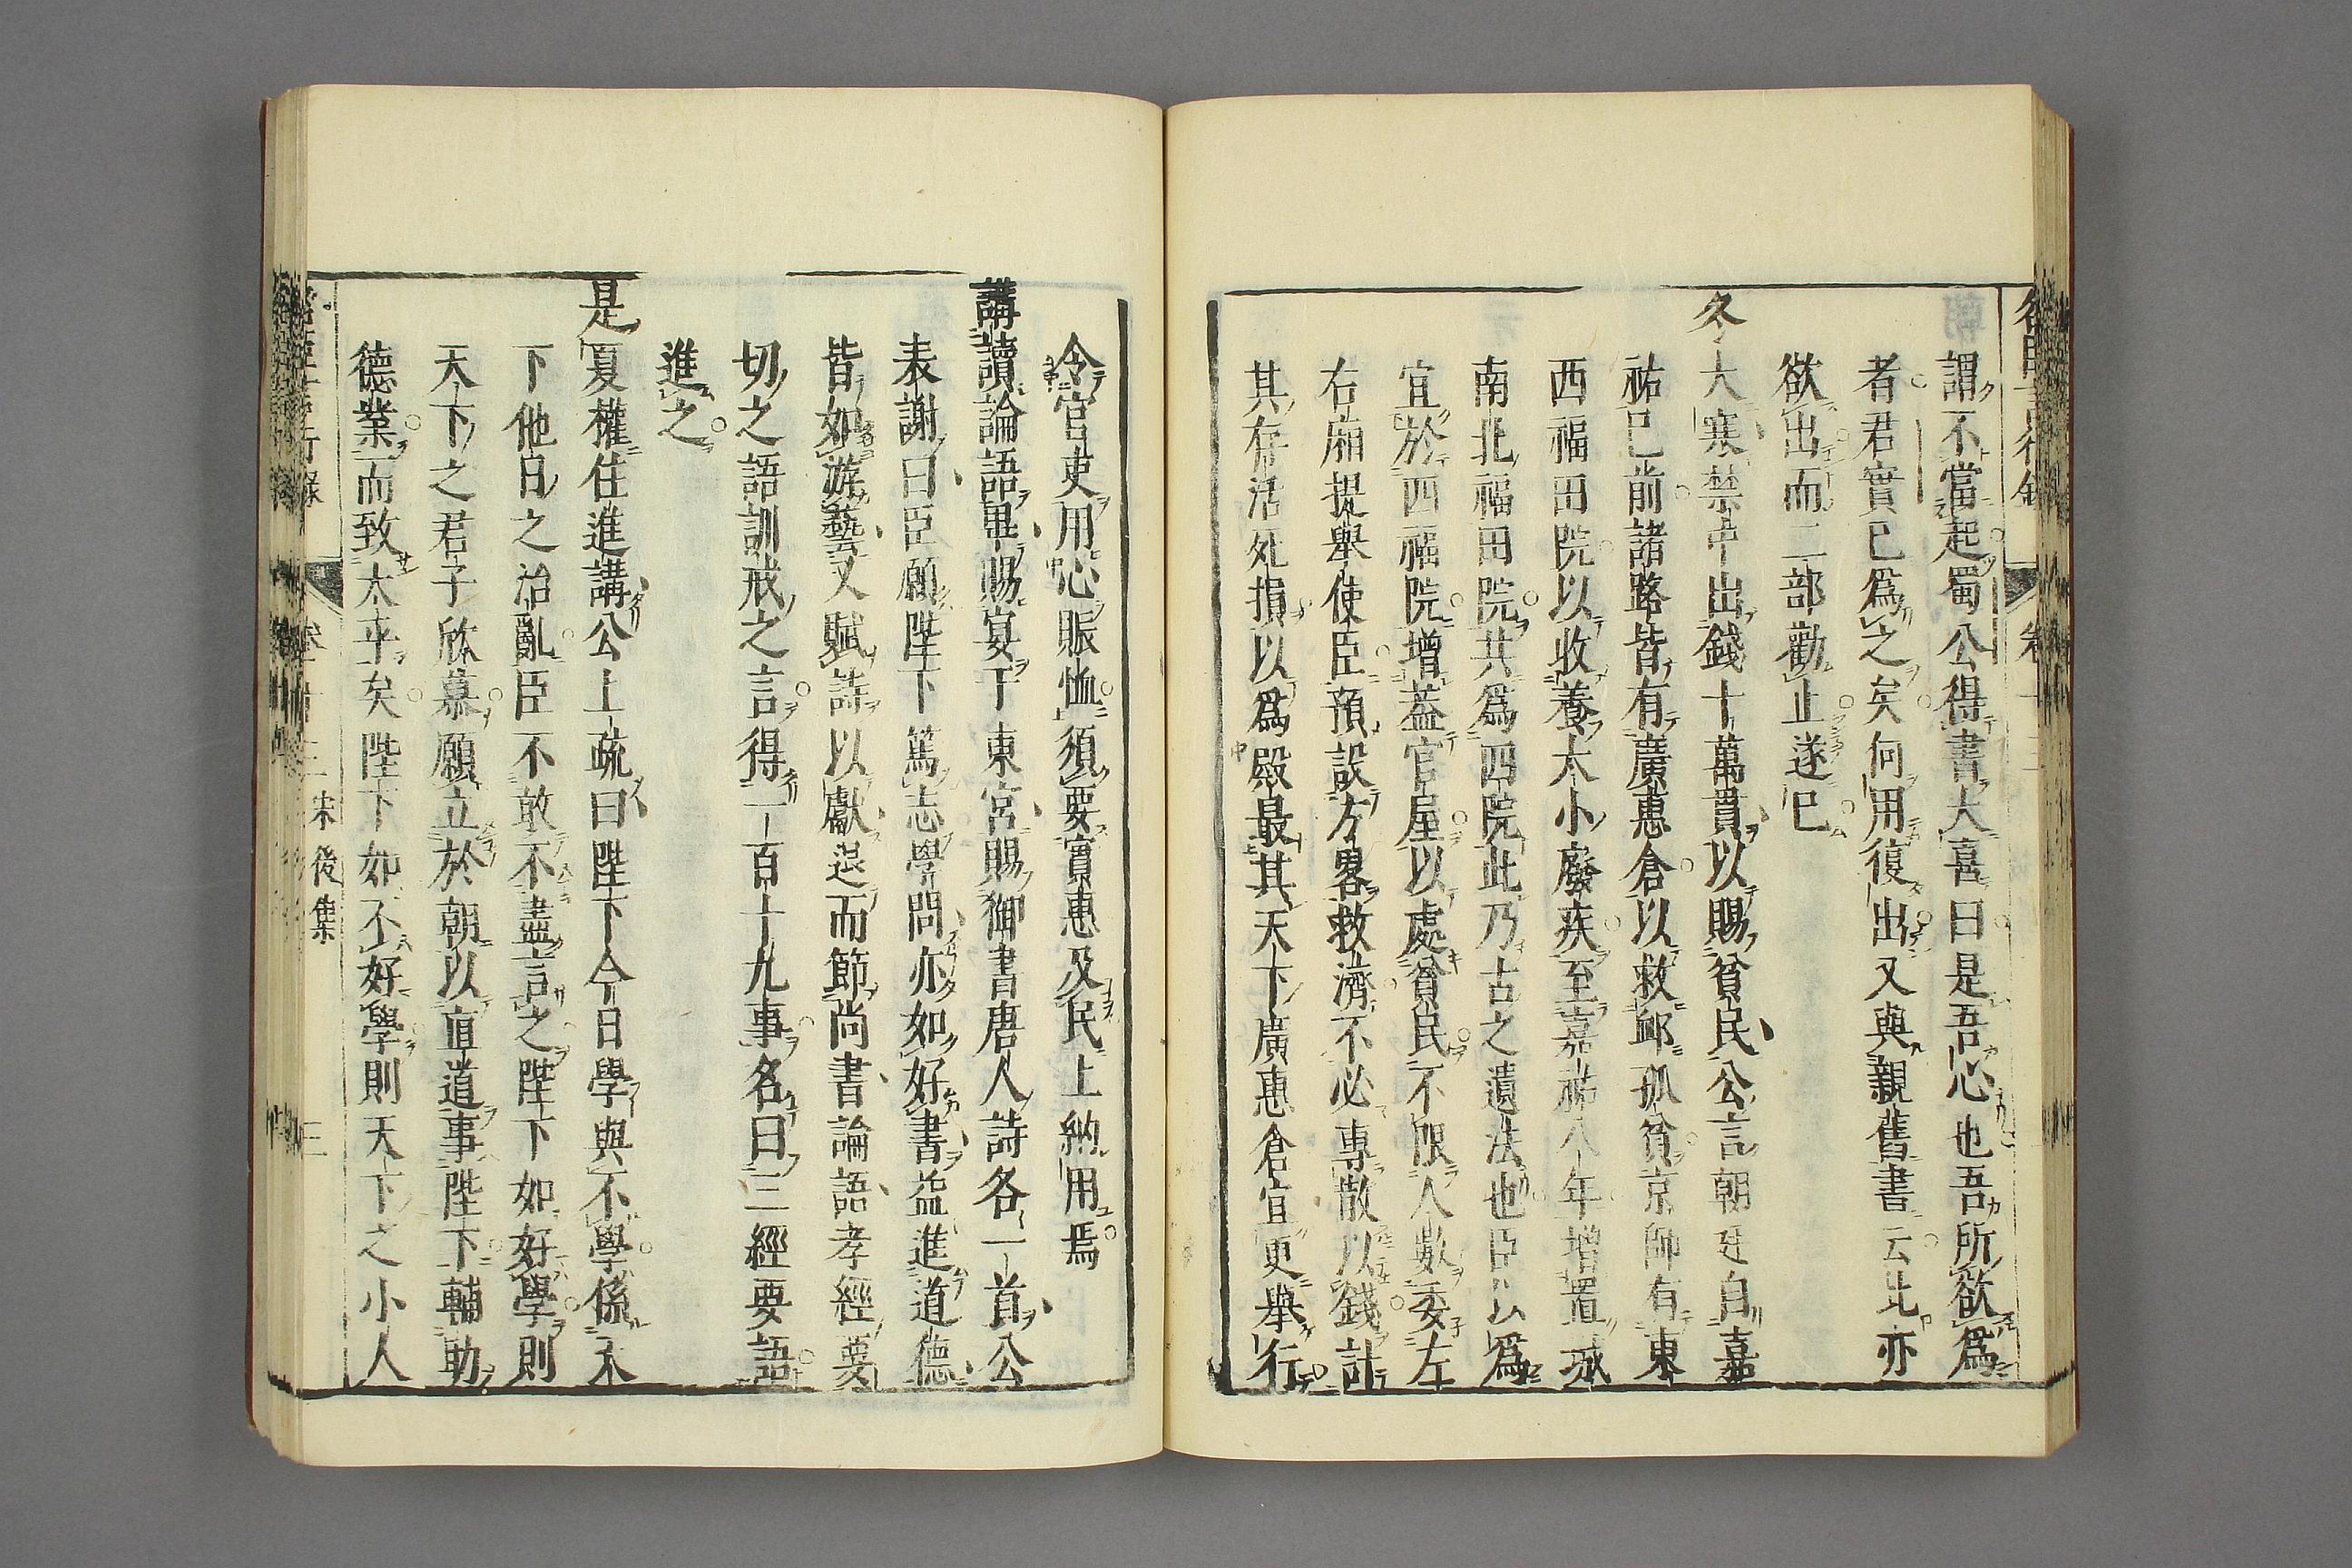 謂不當起蜀公得書大喜曰是吾心也吾所欲爲
者君實已爲之矣何用復出又與親舊書云比亦
欲出而二部勸止遂已
冬大寒禁中出錢十萬貫以賜貧民公言朝廷自嘉
祐已前諸路皆有廣惠倉以救邺孤貧京師有東
西福田院以收養太小廢疾至嘉祐八年增置城
南北福田院共爲四院此乃古之遺法也臣以爲
宜於四福院增葢官屋以處貧民不限人數委左
右廂提舉使臣預設方畧救濟不必專散以錢計
其存活死損以爲殿最其天下廣惠倉宜更舉行
令官吏用心賑恤須要實惠及民上納用焉
講讀論語畢賜宴于東宮賜御書唐人詩各一首公
表謝曰臣願陛下篤志學問亦如好書益進道德
皆如游藝又賦詩以獻退而節尚書論語孝經要
切之語訓戒之言得一百十九事名曰三經要語
進之
是夏權住進講公上疏曰陛下今日學與不學係天
下他日之治亂臣不敢不盡言之陛下如好學則
天下之君子欣慕願立於朝以直道事陛下輔助
德業而致太平矣陛下如不好學則天下之小人
名臣言行錄 卷十三 宋後集 三